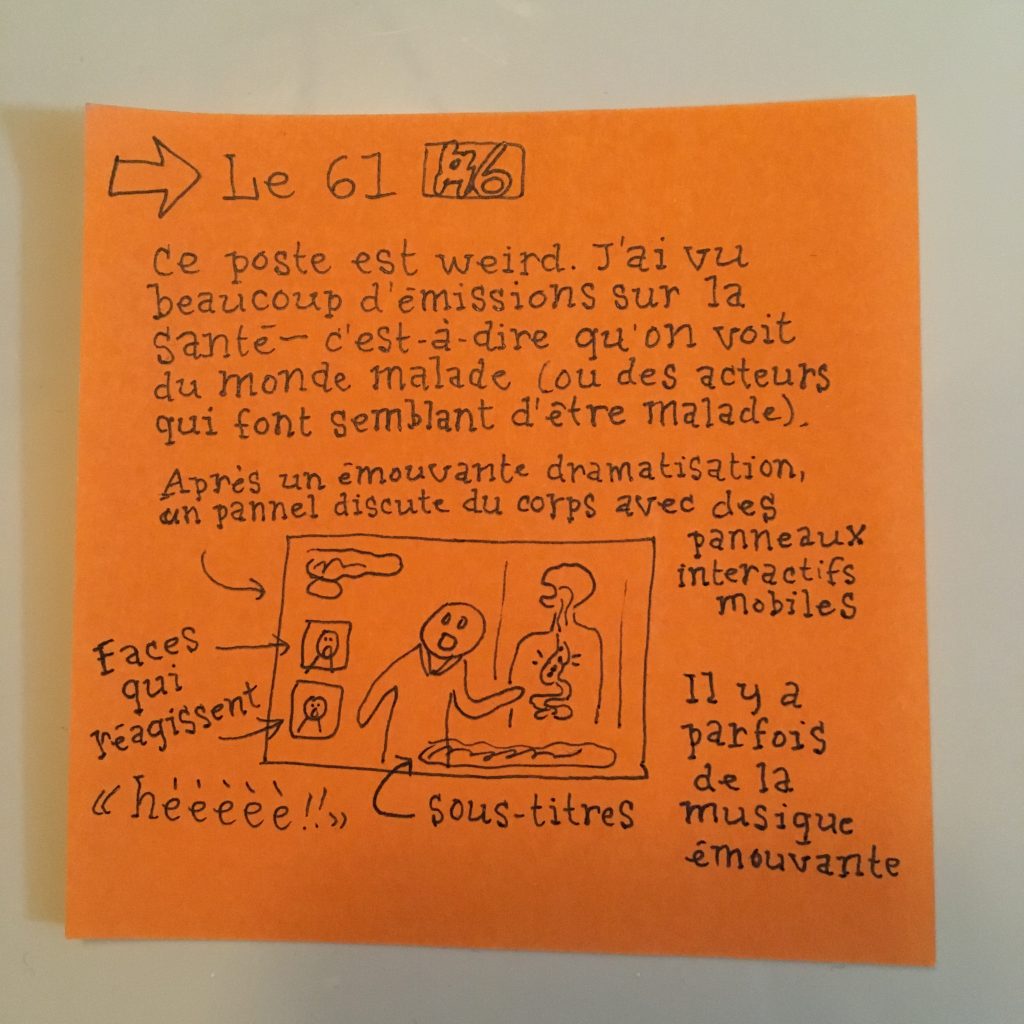 Le 61 #6
Ce poste est weird. J'ai vu
beaucoup d'émissions sur la
santé— c'est-à-dire qu'on voit
du monde malade (ou des acteurs
qui font semblant d'être malade).
Après un émouvante dramatisation,
un pannel discute du corps avec des
panneaux
interactifs
mobiles
Faces
qui
réagissent
« héèèèè!! »
sous-titres
Il y a
parfois
de la
musique
émouvante